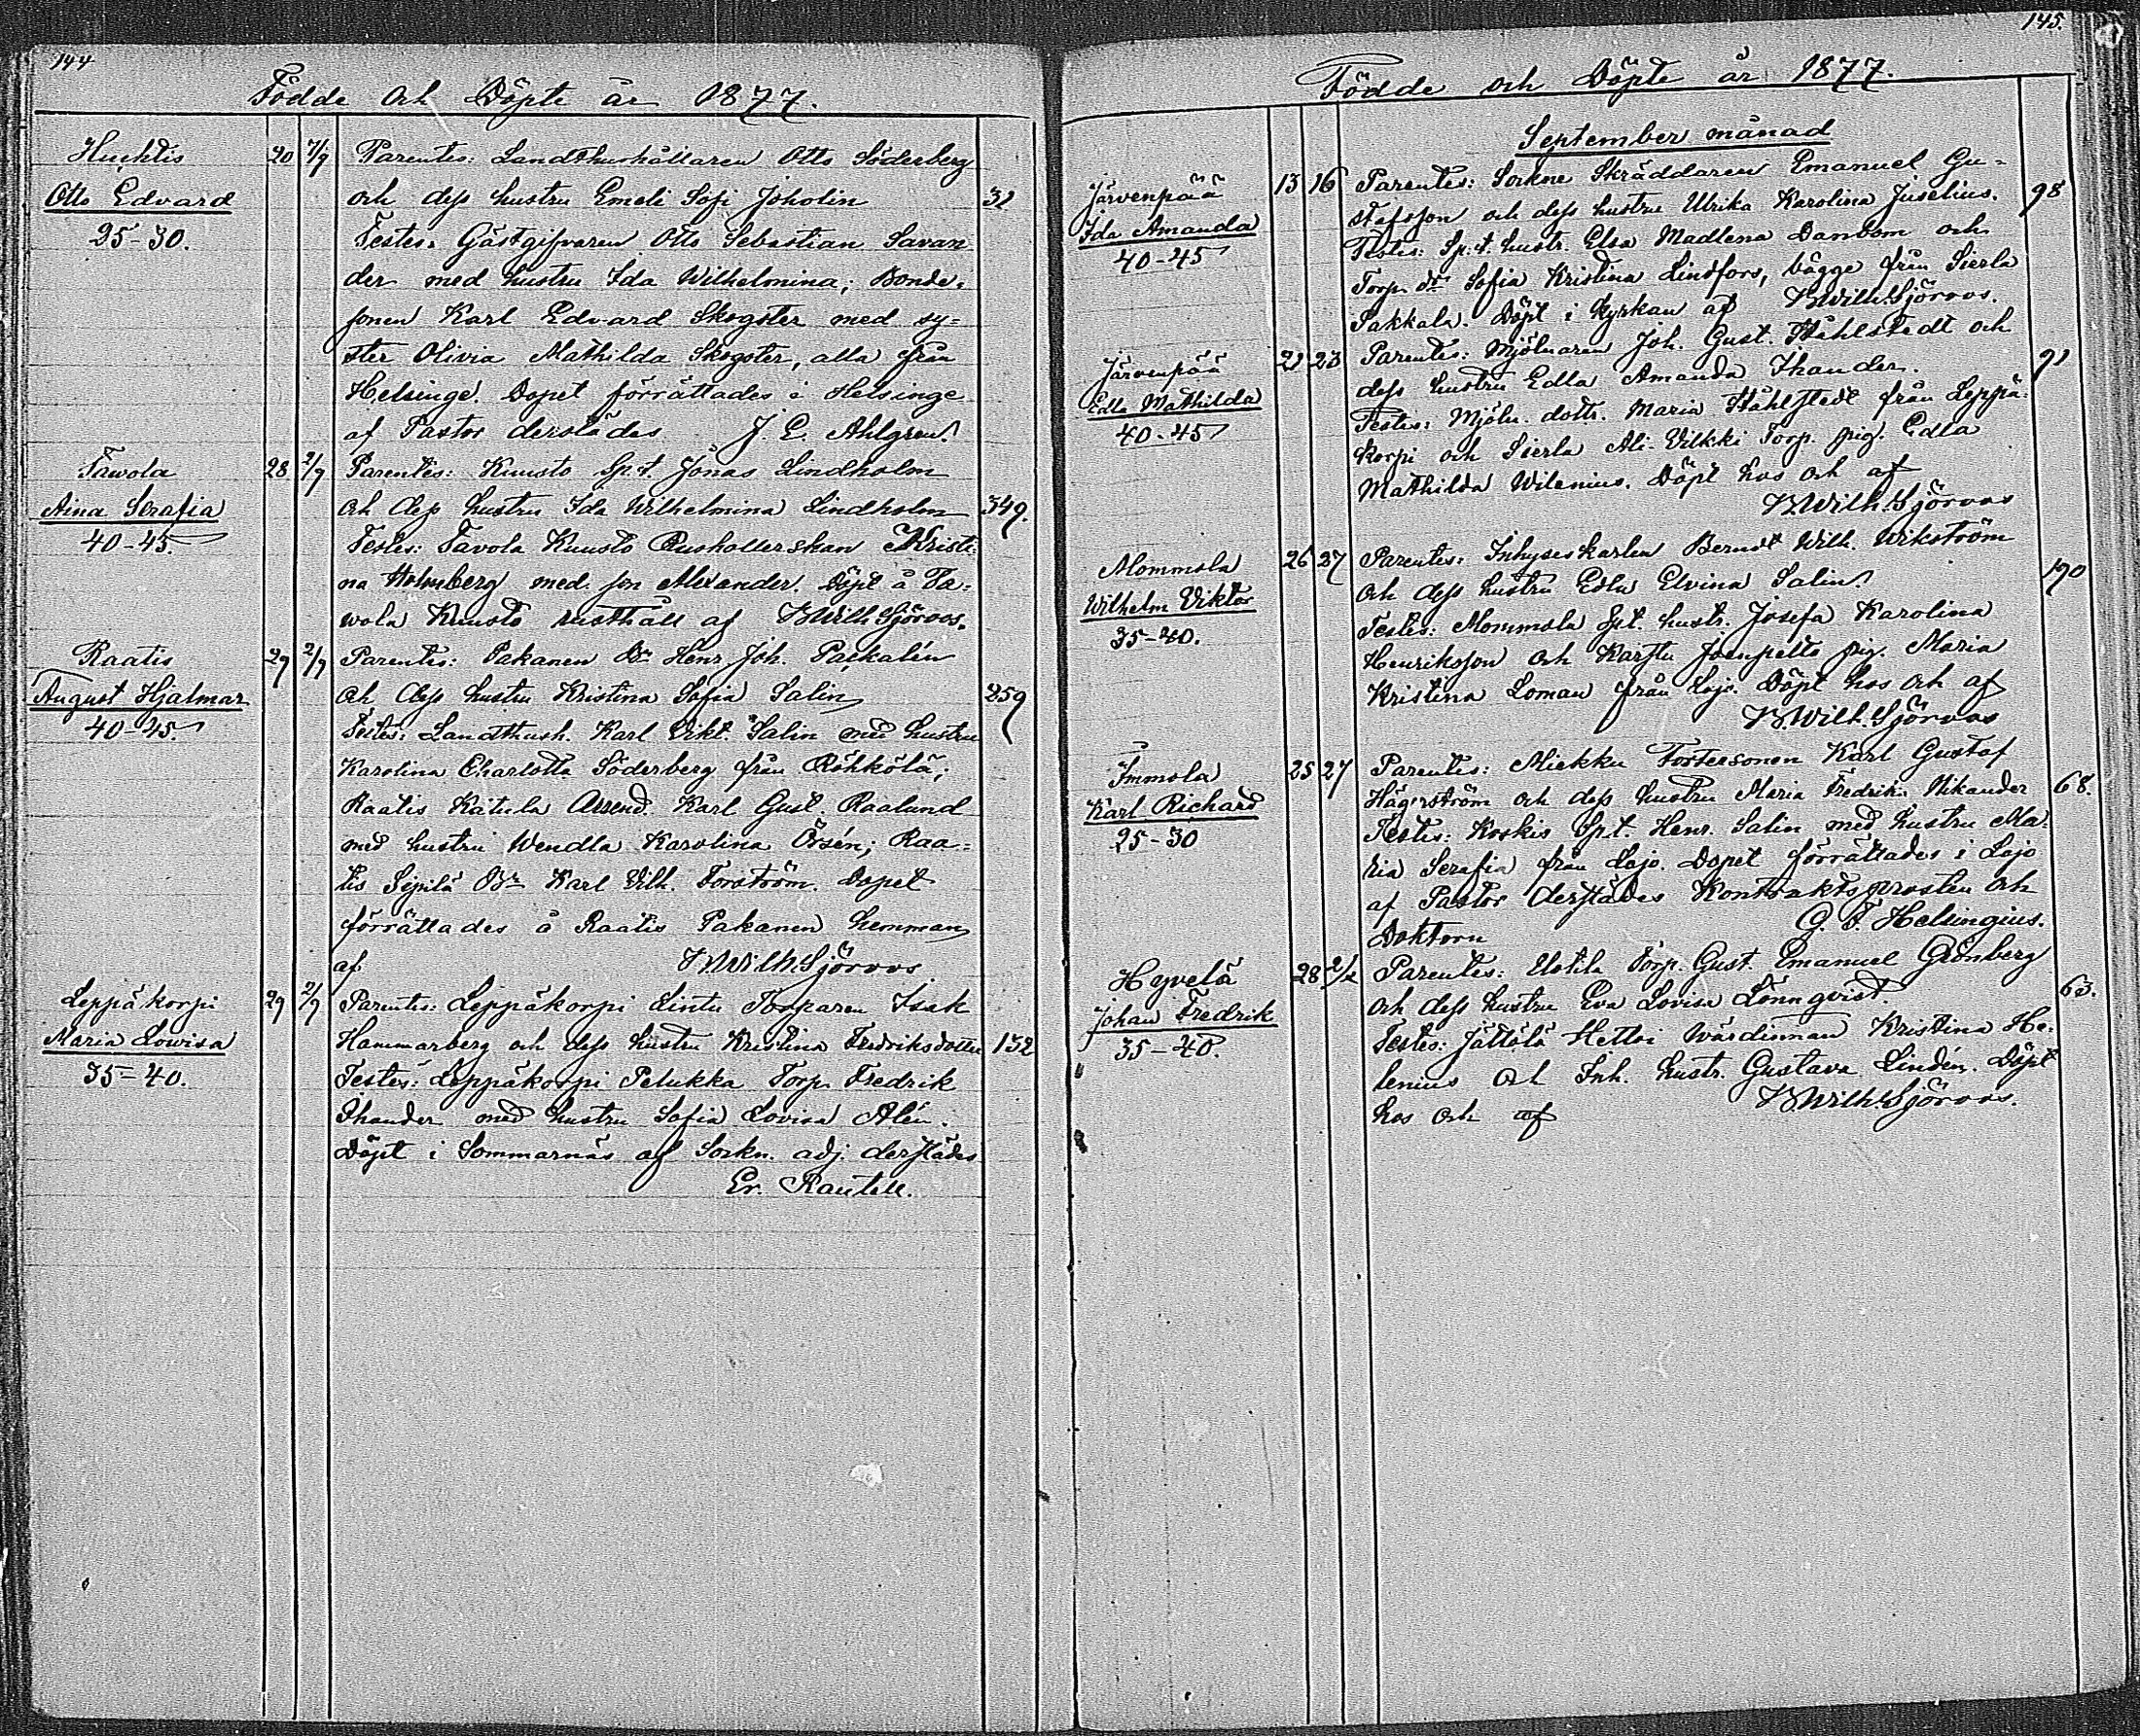 144
Födde och Döpte år 1877.
Huhtis 20 7/9 Parentes: Landthushållaren Otto Söderberg
Otto Edvard och dess hustru Emeli Sofi Joholin 32
25-30. Testes: Gästgifvaren Otto Sebastian Savan
der med hustru Ida Wilhelmina; Bonde-
sonen Karl Edvard Skogster med sy-
ster Olivia Mathilda Skogster, alla från
Helsinge. Dopet förrättades i Helsinge
af Pastor derstädes J. E. Ahlgren.
Tawola 28 2/9 Parentes: Kuusto Sp.t. Jonas Lindholm
Aina Serafia och dess hustru Ida Wilhelmina Lindholm 349.
40-45. Testes: Tavola Kuusto Rusthollerskan Kristi-
na Holmberg med son Alexander. Döpt å Ta-
wola Kuusto rusthåll af K Wilh. Sjöroos.
Raatis 29 2/9 Parentes: Pakanen Bn Henr. Joh. Paikalén
August Hjalmar och dess hustru Kristina Sofia Salin 259
40-45. Testes: Landthush. Karl Vikt. Salin med hustru
Karolina Charlotta Söderberg från Röhkölä;
Raatis Katula Arrend. Karl Gust. Raalund
med hustru Wendla Karolina Örsén; Raa-
tis Sipilä Bn Karl Vilh. Forström. Dopet
förrättades å Raatis Pakanen hemman
af K Wilh. Sjöroos
Leppäkorpi 29 2/9 Parentes: Leppäkorpi Lintu Torparen Isak
Maria Lowisa Hammarberg och dess hustru Kristina Fredriksdotter 132
35-40. Testes: Leppäkorpi Pelukka Torp. Fredrik
Ihander med hustru Sofia Lovisa Alén.
Döpt i Sommarnäs af Sockn. adj. derstädes
Er. Rautell.
145.
Födde och Döpte år 1877.
September månad
Järvenpää 13 16 Parentes: Sockne Skräddaren Emanuel Gu-
Ida Amanda stafsson och dess hustru Ulrika Karolina Juselius. 98
40-45 Testes: Sp.t. hustr. Elsa Madlena Danbom och
Torp. dr Sofia Kristina Lindfors, bägge från Sierla
Pakkala. Döpt i kyrkan af K Wilh. Sjöroos.
Järvenpää 21 23 Parentes: Mjölnaren Joh. Gust. Ståhlstedt och
Edla Mathilda dess hustru Edla Amanda Ihander. 91
40-45 Testes: Mjöln. dottr. Maria Ståhlstedt från Leppä-
korpi och Sierla Ali-Vilkki Torp. pig. Edla
Mathilda Wilenius. Döpt hos och af
K Wilh. Sjöroos
Mommola 26 27 Parentes: Inhyseskarlen Berndt Wilh. Wikström
Wilhelm Viktor och dess hustru Edla Elvina Salin. 190
35-40. Testes: Mommola Spt. hustr. Josefa Karolina
Henriksson och Karstu Joenpelto pig. Maria
Kristina Loman från Lojo. Döpt hos och af
K Wilh. Sjöroos
Immola 25 27 Parentes: Miekku Torparesonen Karl Gustaf
Karl Richard Hägerström och dess hustru Maria Fredrika Nikander 68.
25-30 Testes: Koskis Sp.t. Henr. Salin med hustru Ma-
ria Serafia från Lojo. Dopet förrättades i Lojo
af Pastor derstädes Kontraktsprosten och
Doktorn G. F. Helsingius.
Heyvelä 28 2/x Parentes: Uotila Torp. Gust. Emanuel Grönberg
Johan Fredrik och dess hustru Eva Lovisa Lönnqvist. 63.
35-40. Testes: Jättölä Hettoi Wärdinnan Kristina He-
lenius och Inh. hustr. Gustava Lindén. Döpt
hos och af K Wilh. Sjöroos.